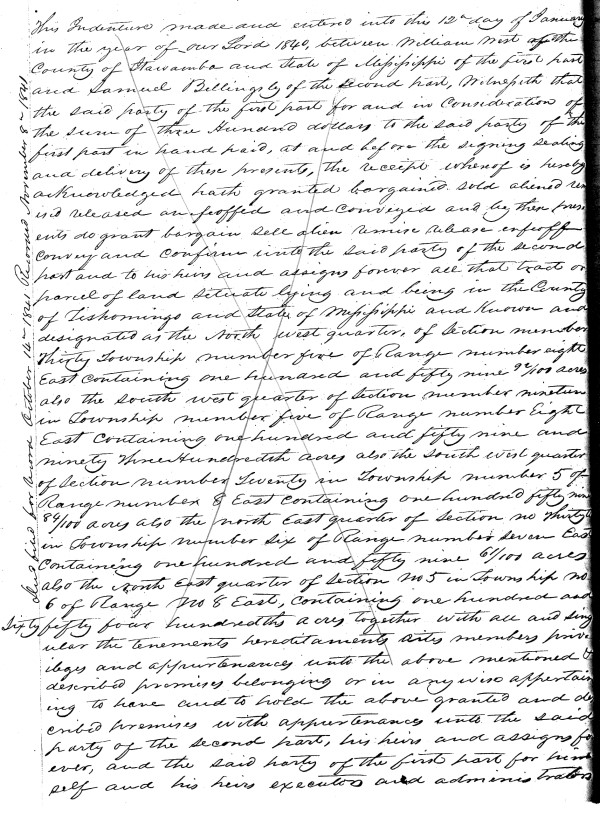 This Indenture made and entered into this 12th day of January
in the year of our Lord 1840, between William West of the
County of Itawamba and State of Mississippi of the first part
and Samuel Billingsly of the Second part, Witnesseth that
the said party of the first part for and in Consideration of
the sum of three Hundred dollars to the said party of the
first part in hand paid, at and before the signing sealing
and delivery of these presents, the receipt whereof is hereby
acknowledged hath granted bargained sold aliened rem
isd released enfeoffed and Conveyed and by these pres
ents do grant bargain sell alien remise release enfeoff
Convey and Confirm unto the said party of the second
part and to his heirs and assigns forever all that tract or
parcel of land situate lying and being in the County
of Tishomingo and State of Mississippi and Known and
designated as the North west quarter, of Section number
Thirty Township number five of Range number eight
East Containing one hundred and fifty nine 92/100 acres
also the South west quarter of Section number nineteen
in Township number five of Range number Eight
East Containing one hundred and fifty nine and
ninety Three Hundredth acres also the South West quarter
of Section number Twenty in Township number 5 of
Range number 8 East Containing one hundred fifty nine
84/100 acres also the north East quarter of Section no Thirty
in Township number Six of Range number Seven East
Containing one hundred and fifty nine 61/100 acres
also the North East quarter of Section No 5 in Township no
6 of Range No 8 East, Containing one hundred and
Sixty fifty four hundredths acres together with all and sing
ular the tenements hereditaments members priv
ileges and appurtenances unto the above mentioned &
described premises belonging or in any wise appertain
ing to have and to hold the above granted and de
cribed premises with appurtenances unto the said
party of the second part, his heirs and assigns for
ever, and the said party of the first part for him
self and his heirs executors and administrators
filed for Record October 14th 1841 Recorded November 8th 1841